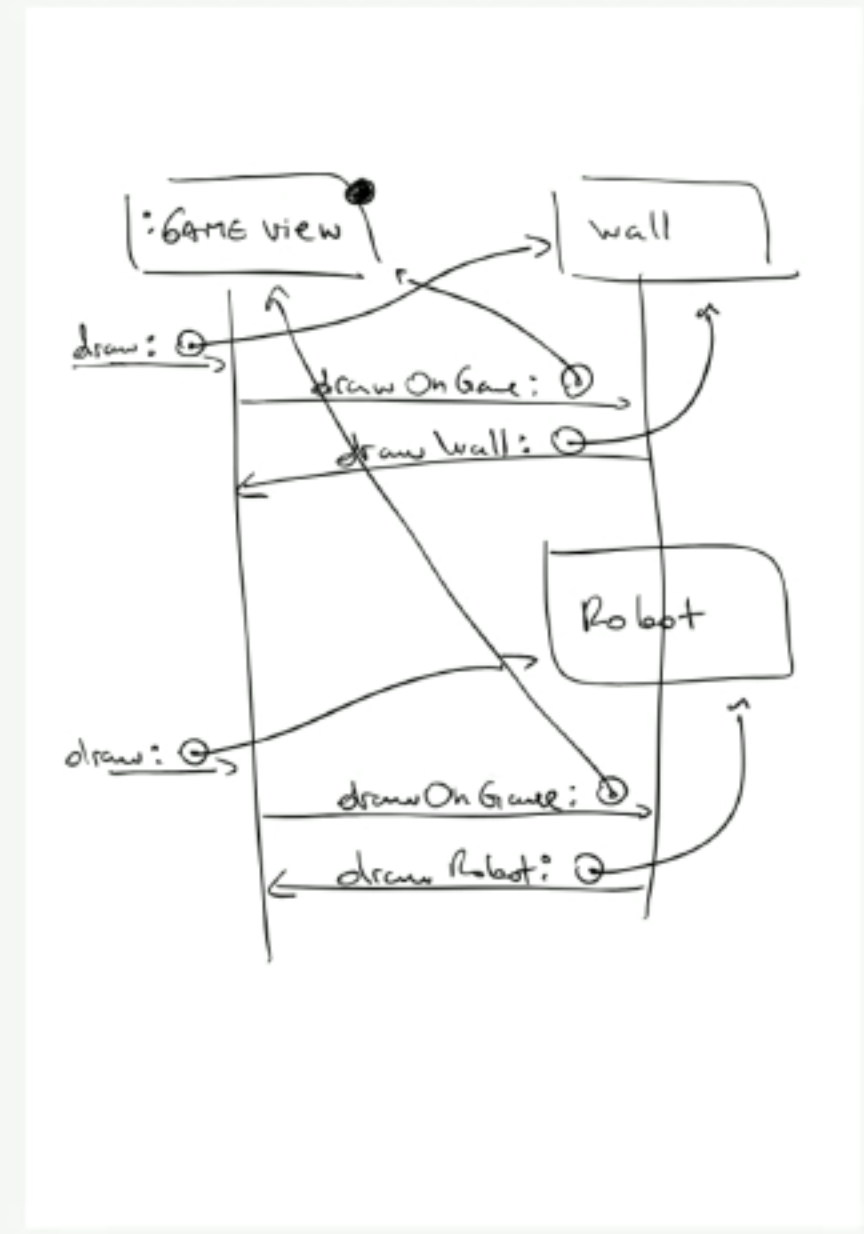 :GAME VIEW
Wall
draw:
drawOnGame:
drawWall:
Robot
draw:
drawOnGame:
drawRobot: